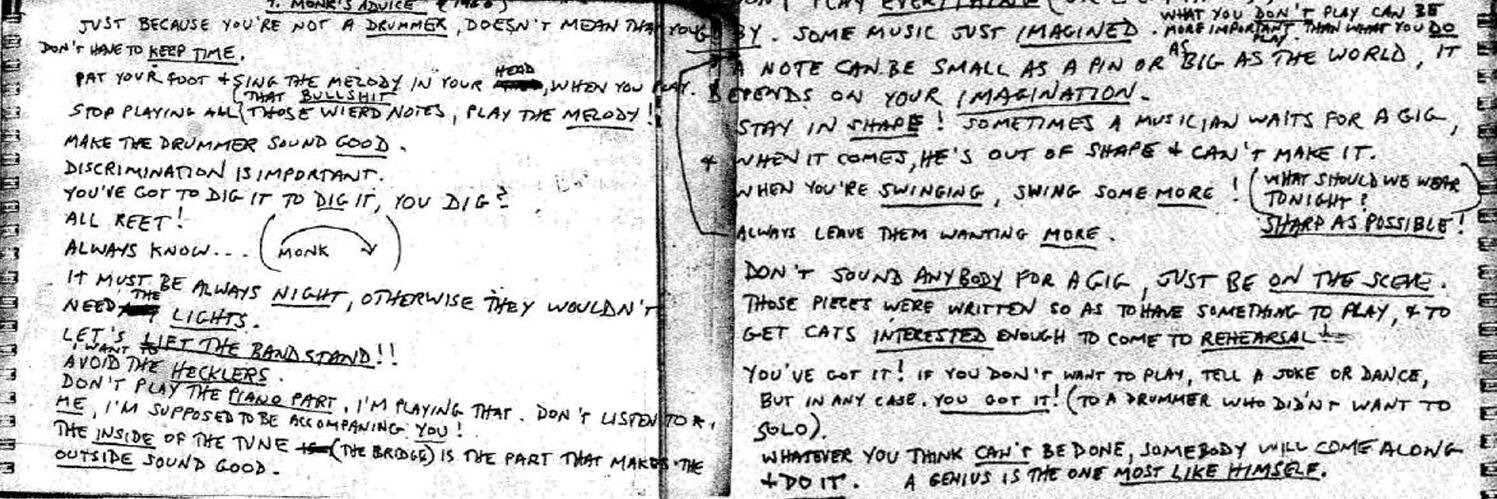 T. MONK'S ADVICE (1960)
JUST BECAUSE YOU'RE NOT A DRUMMER, DOESN'T MEAN THAT YOU
DON'T HAVE TO KEEP TIME.
PAT YOUR FOOT + SING THE MELODY IN YOUR HEAD, WHEN YOU PLAY.
STOP PLAYING ALL (THAT BULLSHIT) THOSE WIERD NOTES, PLAY THE MELODY!
MAKE THE DRUMMER SOUND GOOD.
DISCRIMINATION IS IMPORTANT.
YOU'VE GOT TO DIG IT TO DIG IT, YOU DIG?
ALL REET!
ALWAYS KNOW... (MONK)
IT MUST BE ALWAYS NIGHT, OTHERWISE THEY WOULDN'T
NEED THE LIGHTS.
LET'S LIFT THE BANDSTAND!!
I WANT TO
AVOID THE HECKLERS.
DON'T PLAY THE PIANO PART, I'M PLAYING THAT. DON'T LISTEN TO
ME, I'M SUPPOSED TO BE ACCOMPANING YOU!
THE INSIDE OF THE TUNE (THE BRIDGE) IS THE PART THAT MAKES THE
OUTSIDE SOUND GOOD.
PLAY EVERYTHING
BY. SOME MUSIC JUST IMAGINED. WHAT YOU DON'T PLAY CAN BE
MORE IMPORTANT THAN WHAT YOU DO
PLAY.
A NOTE CAN BE SMALL AS A PIN OR AS BIG AS THE WORLD, IT
DEPENDS ON YOUR IMAGINATION.
STAY IN SHAPE! SOMETIMES A MUSICIAN WAITS FOR A GIG,
+ WHEN IT COMES, HE'S OUT OF SHAPE + CAN'T MAKE IT.
WHEN YOU'RE SWINGING, SWING SOME MORE!
(WHAT SHOULD WE WEAR
TONIGHT?
SHARP AS POSSIBLE!)
ALWAYS LEAVE THEM WANTING MORE.
DON'T SOUND ANYBODY FOR A GIG, JUST BE ON THE SCENE.
THOSE PIECES WERE WRITTEN SO AS TO HAVE SOMETHING TO PLAY, + TO
GET CATS INTERESTED ENOUGH TO COME TO REHEARSAL!
YOU'VE GOT IT! IF YOU DON'T WANT TO PLAY, TELL A JOKE OR DANCE,
BUT IN ANY CASE, YOU GOT IT! (TO A DRUMMER WHO DIDN'T WANT TO
SOLO).
WHATEVER YOU THINK CAN'T BE DONE, SOMEBODY WILL COME ALONG
+ DO IT. A GENIUS IS THE ONE MOST LIKE HIMSELF.